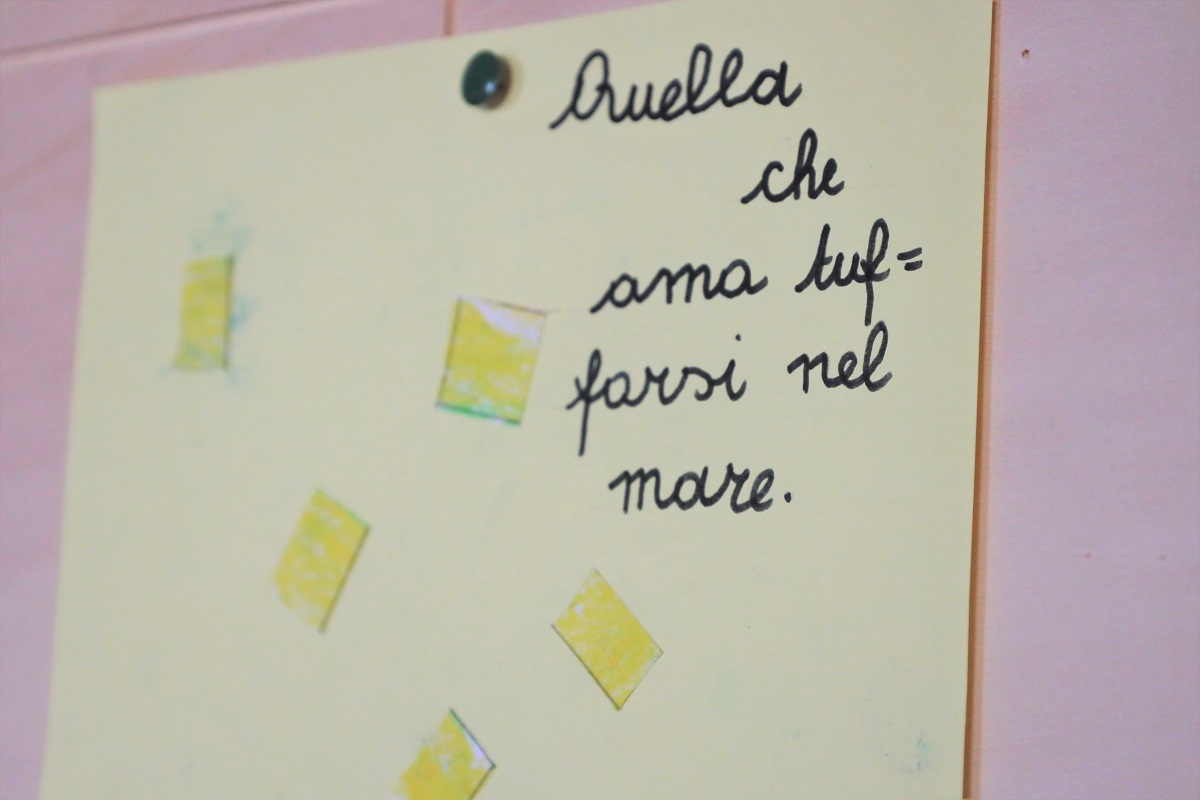 Quella
che
ama tuf=
farsi nel
mare.